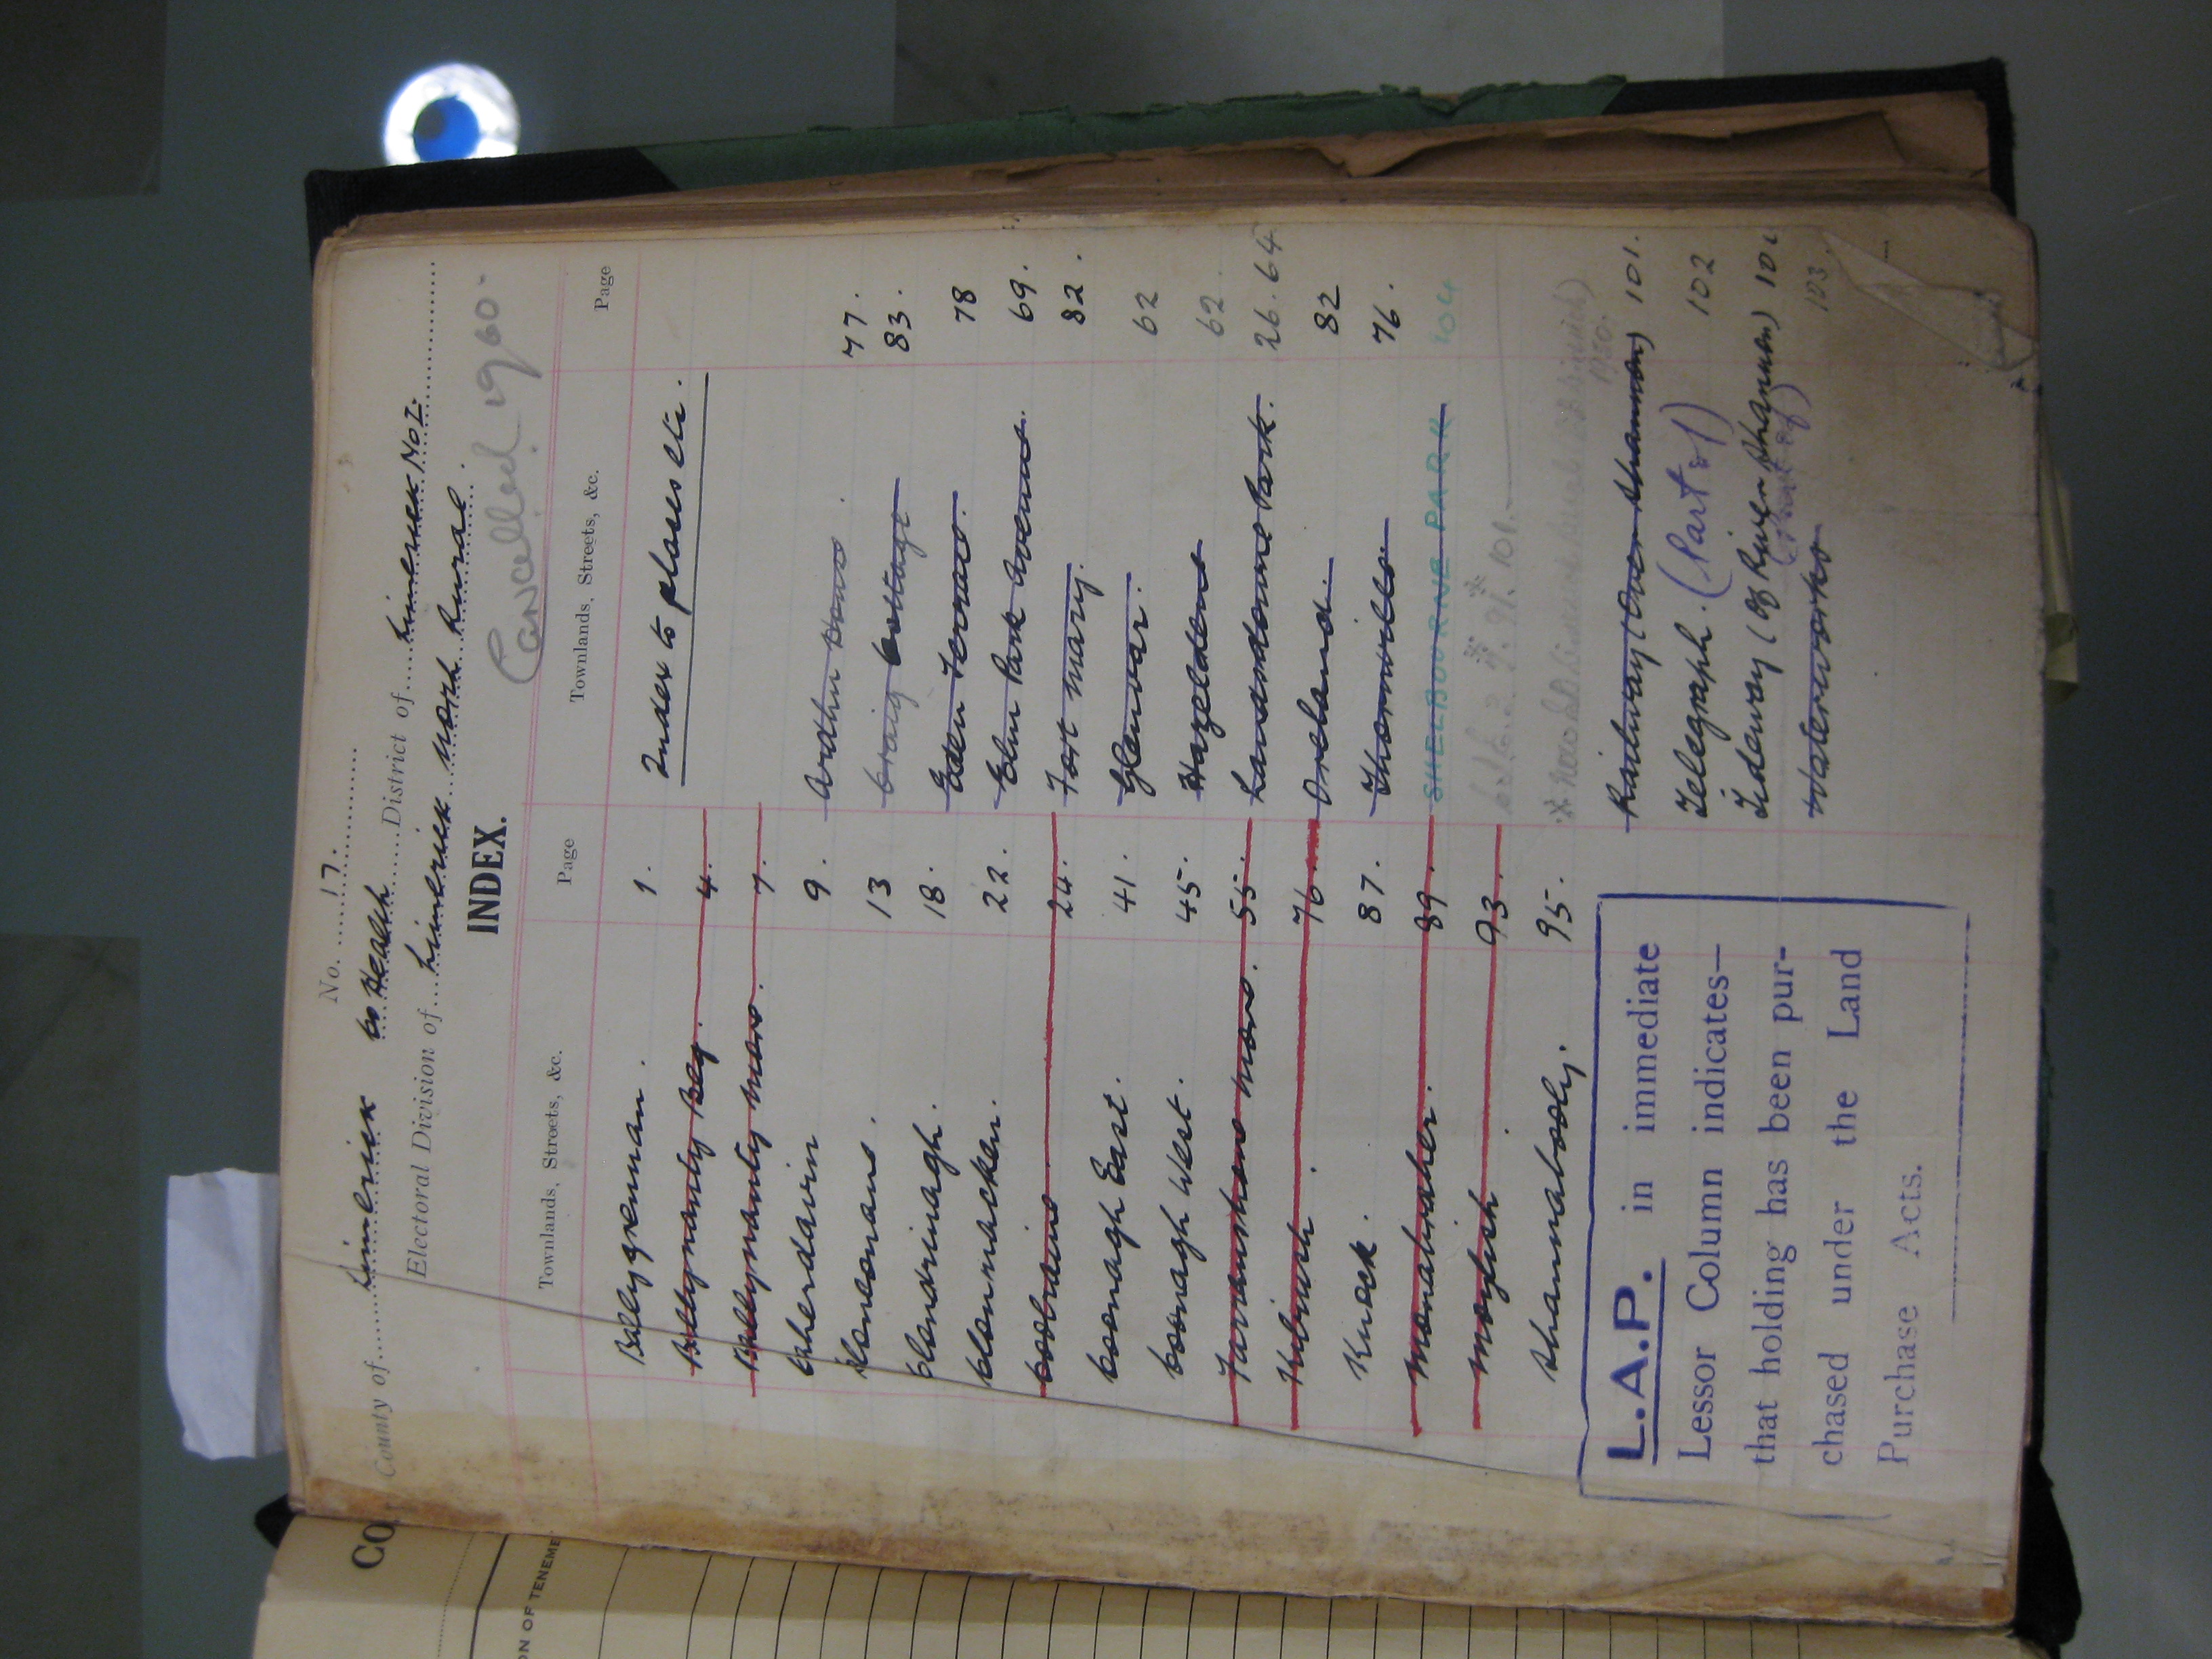 No. 17.
County of Limerick Co Health District of Limerick No I.
Electoral Division of Limerick North Rural.
INDEX.
Cancelled 1960.
Townlands, Streets, &c. Page Townlands, Streets, &c. Page
Ballygrennan. 1. Index to places etc.
Ballynanty Beg. 4.
Ballynanty More. 7.
Caherdavin 9. Ardhu House 77.
Clonconane. 13 Craig Cottage 83.
Clondrinagh. 18. Eden Terrace. 78
Clonmacken. 22. Elm Park Avenue. 69.
Coolraine 24. Fort Mary. 82.
Coonagh East. 41. Glenvar. 62
Coonagh West. 45. Hazeldene 62
Farranshone More. 55. Lansdowne Park. 26.64
Kilrush. 76. Oreland. 82
Knock. 87. Thornville 76.
Monabraher. 89. SHELBOURNE PARK 104
Moylish 93.
Shannabooly. 95.
Railway (Over Shannon) 101.
Telegraph. (Part of) 102
Tideway (Of River Shannon) 101
Waterworks 103.
L.A.P. in immediate
Lessor Column indicates—
that holding has been pur-
chased under the Land
Purchase Acts.
CO
ON OF TENEME